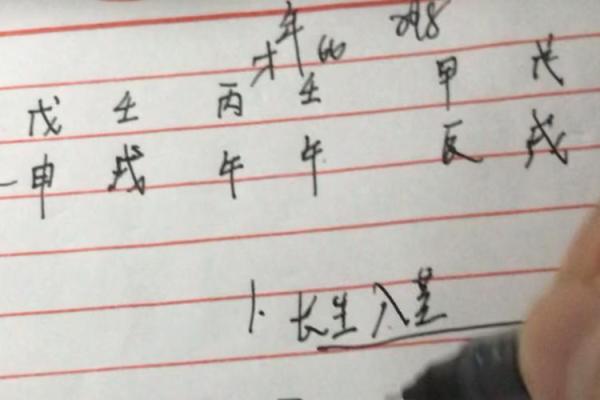 年
才
戊 壬 丙 壬 甲 戊
申 戌 午 午 辰 戌
1. 长生入墓